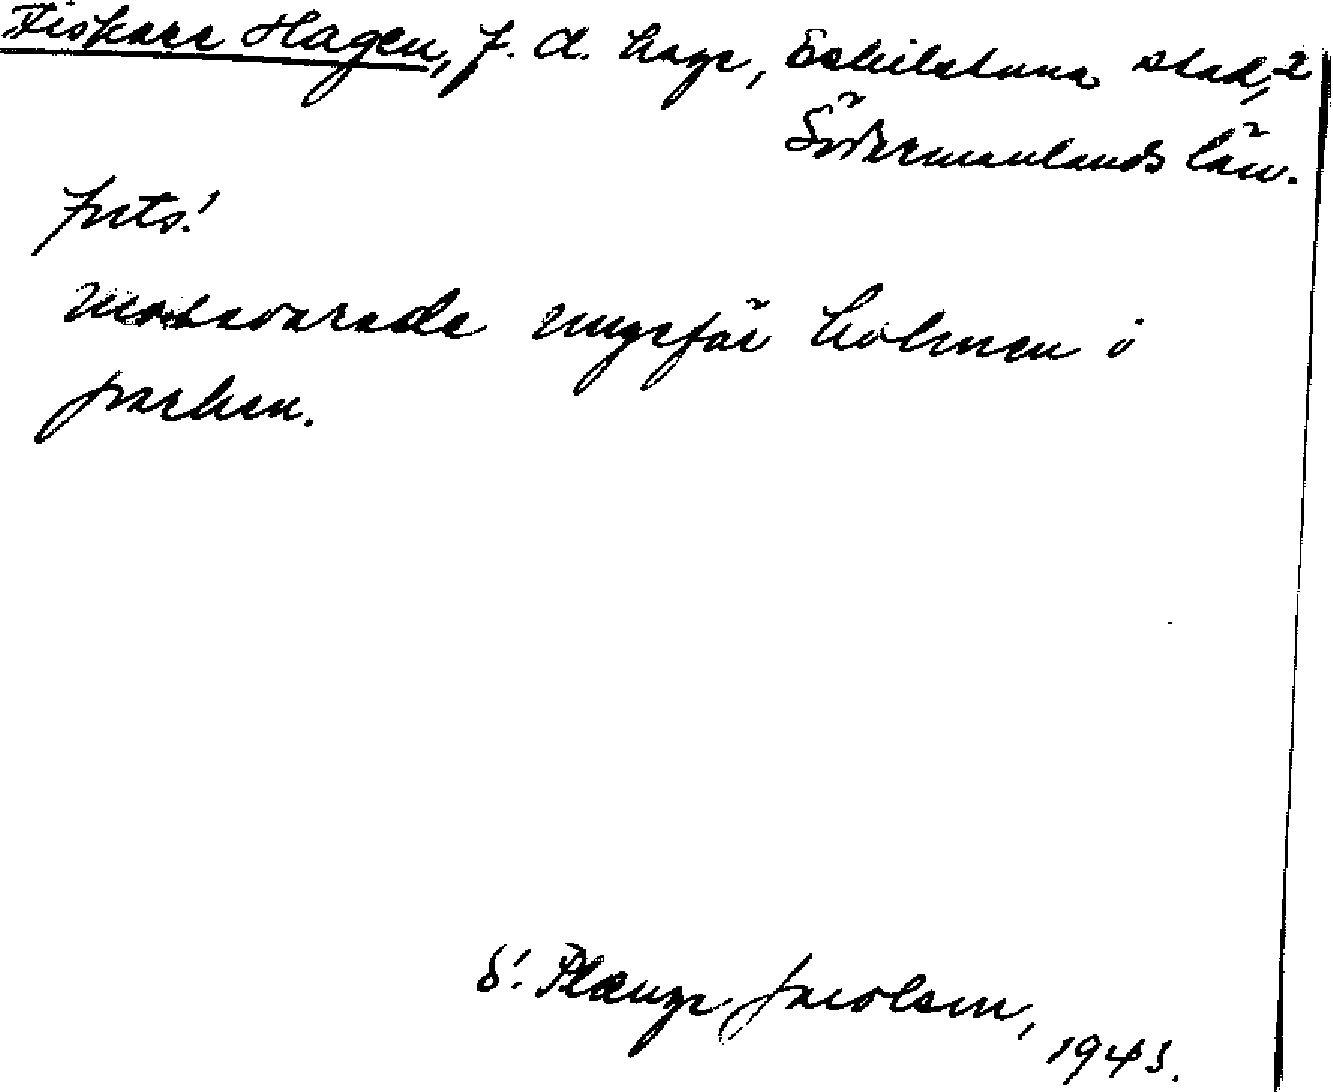 Fiskare Hagen, f. d. hage, Eskilstuna stad, 2
Södermanlands län.
forts.
motsvarade ungefär holmen i
parken.
S. Plænge Jacobson,
1943.